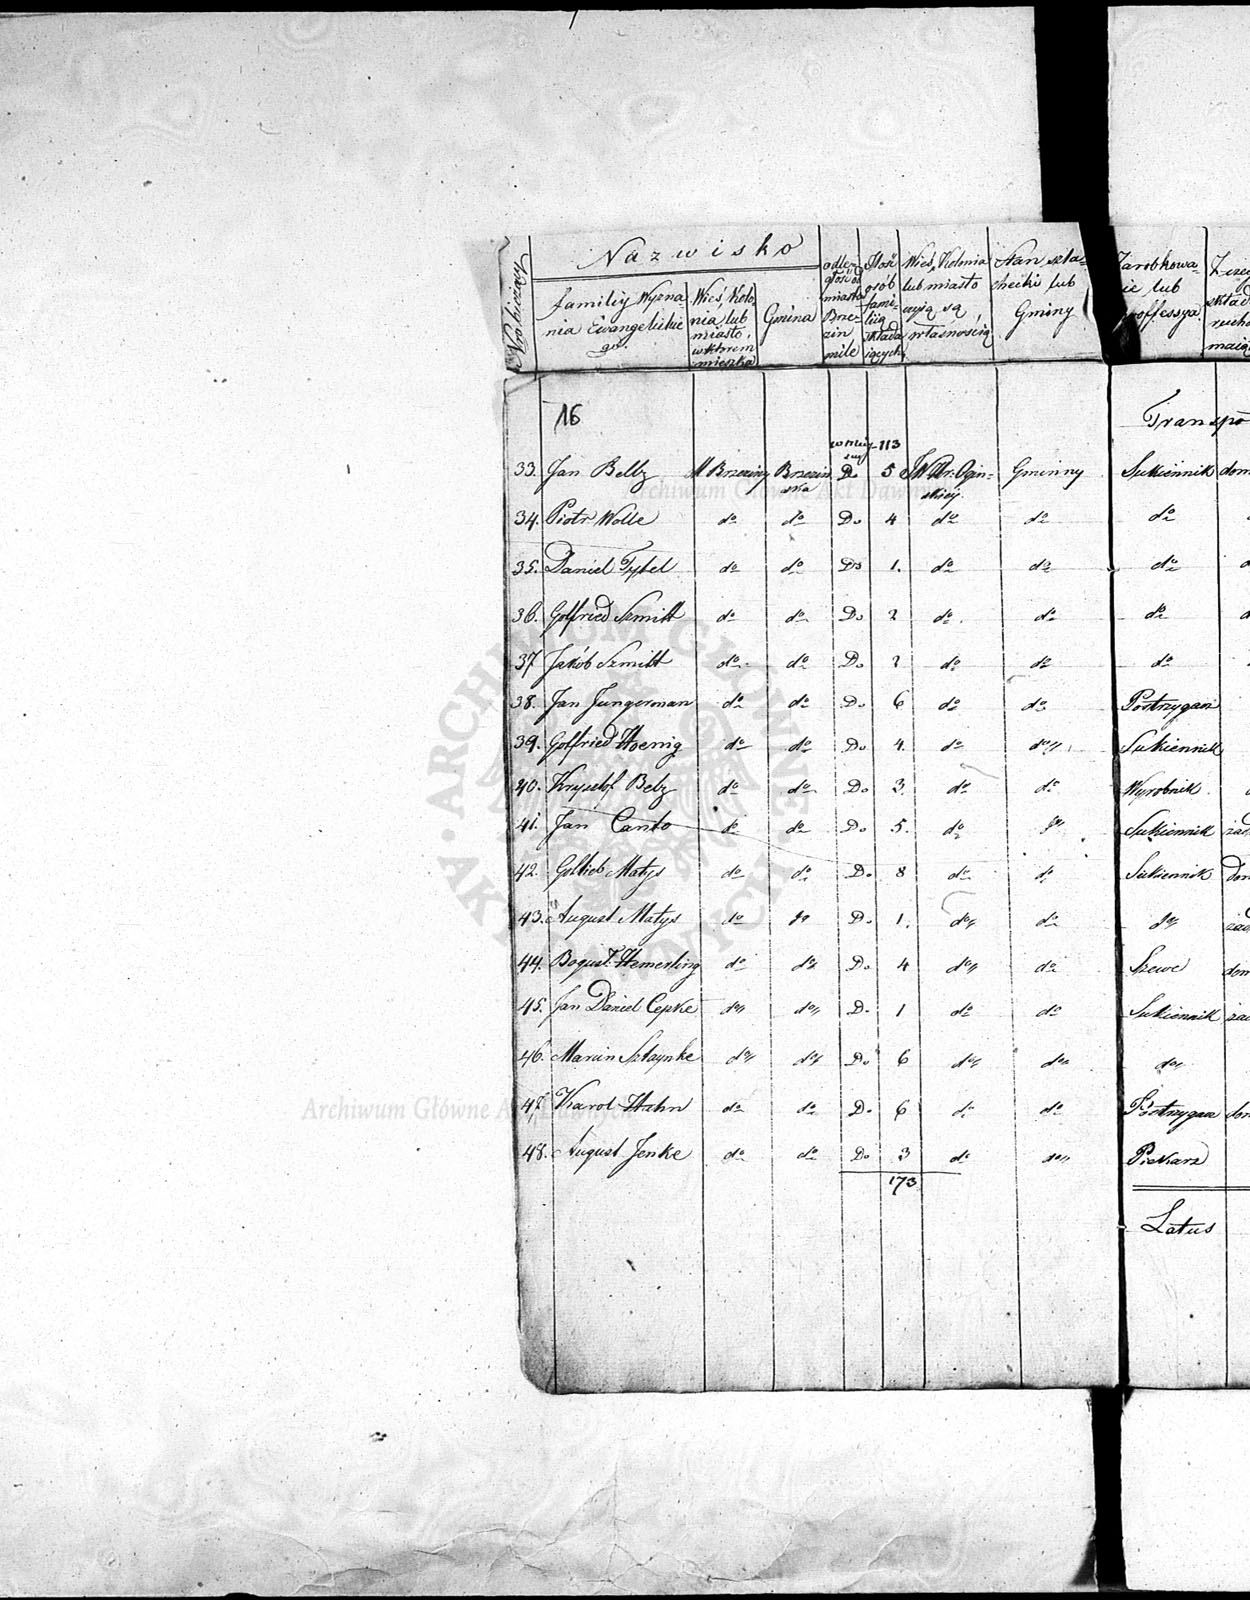 Nro bieżący
Nazwisko
familiy Wyzna
nia Ewangelickie
go
Wieś, Kolo-
nia lub
miasto,
w którem
mieszka
Gmina
odle-
głość od
miasta
Brze-
zin
mile
Ilość
osób
fami-
lią
składa
iących
Wieś, Kolonia
lub miasto
czyją są
własnością
Stan szla-
checki lub
Gminny
Zarobkowa-
ie lub
roffessya
skład
maią
16
Transpo
w miey 113
33. Jan Beltz M Brzeziny Brzezin Do 5 JW Hr. Ogin- Gminny Sukiennik dom
ska skiey
34. Piotr Wolle do do Do 4 do do do
35. Daniel Tybel do do Do 1. do do do
36. Gotfried Szmitt do do Do 2 do do do
37 Jakób Szmitt do do Do 2 do do do
38. Jan Jungerman do do Do 6 do do Postrzygacz
39. Gotfried Hoenig do do Do 4. do do Sukiennik
40. Krysztof Beltz do do Do 3. do do Wyrobnik
41. Jan Canto do do Do 5. do do Sukiennik
42. Gottlieb Matys do do Do 8 do do Sukiennik dom
43. August Matys do do Do 1. do do do
44. Bogust. Hemerling do do Do 4 do do Szewc dom
45. Jan Daniel Cepke do do Do 1 do do Sukiennik
46. Marcin Sztaynke do do Do 6 do do do
47. Karol Hahn do do Do 6 do do Postrzygacz dom
48. August Jenke do do Do 3 do do Piekarz
173
Latus
Archiwum Główne Akt Dawnych
Archiwum Główne Akt Dawnych
ARCHIWUM GŁÓWNE AKT DAWNYCH